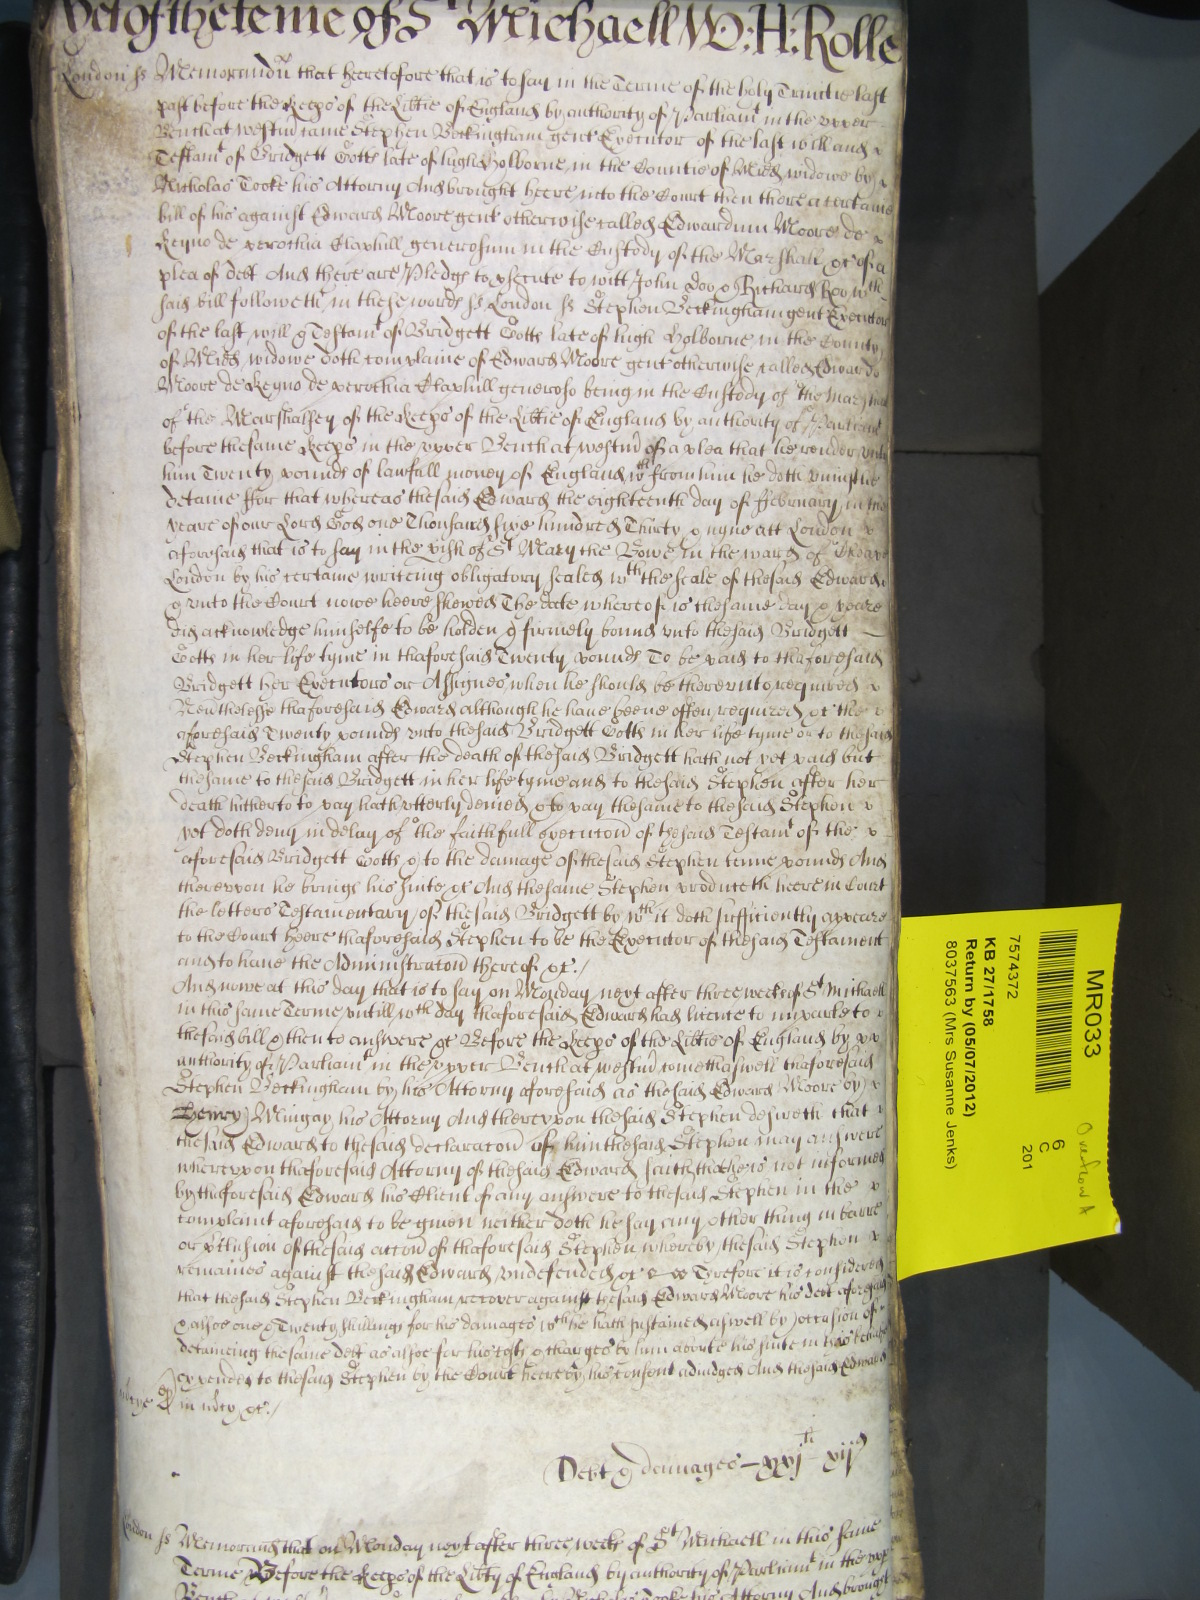 Yet of the terme of St Michaell W: H: Rolle
London ss Memorandu that heeretofore that is to say in the Terme of the holy Trinitie last
past before the Keeps of the Libtie of England by authority of Parliamt in the upper
Bench at Westm came Stephen Beckingham gent Executor of the last will and
Testamt of Bridgett Cotts late of high Holborne in the Countie of Midd widowe by
Nicholas Cooke his Attorny And brought heere into the Court then there a certaine
bill of his against Edward Moore gent otherwise called Edwardum Moore de
Regno de perochia Claxhill generosum in the Custody of the Marshall &c of a
plea of debt And there are Pledgs to psecute to witt John Doo & Richard Roo wch
said bill followeth in these words ss London ss Stephen Beckingham gent Executor
of the last will & Testamt of Bridgett Cotts late of high Holborne in the County
of Midd widowe doth complaine of Edward Moore gent otherwise called Edwardo
Moore de Regno de perochia Claxhill generoso being in the Custody of the
of the Marshallsey of the Keeps of the Libtie of England by authority of Parliamt
before the same Keeps in the upper Bench at Westm of a plea that he render unto
him Twenty pounds of lawfull money of England wch from him he doth uniustlie
detaine ffor that whereas thesaid Edward the eighteenth day of ffebruary in the
yeare of our Lord God one Thousand sixe hundred Thirty & nyne att London
aforesaid that is to say in the pish of St Mary the Bowe in the ward of Cheape
London by his certaine writeing obligatory sealed wth the seale of thesaid Edward
& unto the Court nowe heere shewed The date whereof is thesame day & yeare
did acknowledge himselfe to be holden & firmely bound unto thesaid Bridgett
Cotts in her life tyme in thaforesaid Twenty pounds To be paid to thaforesaid
Bridgett her Executors or Assignes when he should be thereunto required
Neuthelesse thaforesaid Edward although he haue beene often required &c the
aforesaid Twenty pounds unto thesaid Bridgett Cotts in her life tyme or to thesaid
Stephen Beckingham after the death of thesaid Bridgett hath not yet paid but
thesame to thesaid Bridgett in her life tyme and to thesaid Stephen after her
death hitherto to pay hath utterly denied & to pay thesame to thesaid Stephen
yet doth deny in delay of the faithfull execucon of thesaid Testamt of the
aforesaid Bridgett Cotts & to the damage of thesaid Stephen tenne pounds And
thereupon he brings his suite &c And thesame Stephen produceth heere in Court
the letters Testamentary of thesaid Bridgett by wch it doth sufficiently appeare
to the Court heere thaforesaid Stephen to be the Executor of thesaid Testament
and to haue the Administracon thereof &c./
And nowe at this day that is to say on Monday next after three weeks of St Michaell
in this same Terme untill wch day thaforesaid Edward had licence to imparle to
thesaid bill & then to answere &c Before the Keeps of the Libtie of England by
authority of Parliamt in the upper Bench at Westm come aswell thaforesaid
Stephen Beckingham by his Attorny aforesaid as thesaid Edward Moore by
Henry Mingay his Attorny And thereupon thesaid Stephen desireth that
thesaid Edward to thesaid declaracon of him thesaid Stephen may answere
whereupon thaforesaid Attorny of thesaid Edward saith that he is not informed
by thaforesaid Edward his Client of any answere to thesaid Stephen in the
complaint aforesaid to be giuen neither doth he say any other thing in barre
or pclusion of thesaid accon of thaforesaid Stephen whereby thesaid Stephen
remaines against thesaid Edward undefended &c Therefore it is considered
that thesaid Stephen Beckingham recover against thesaid Edward Moore his debt aforesaid
& alsoe one & Twenty shillings for his damages wch he hath sustained aswell by occasion of
detaineing thesame debt as alsoe for his costs & charges by him aboute his suite in this behalfe
expended to thesaid Stephen by the Court heere by his consent adiudged And thesaid Edward
in mcy &c./
Debt & damages
London ss Memorand that on Monday next after three week of St Michaell in this same
Terme Before the Keeps of the Libty of England by authority of Parliamt in the upp
MR033
7574372
KB 27/1758
Return by (05/07/2012)
8037563 (Mrs Susanne Jenks)
6
C
201
Overflow A